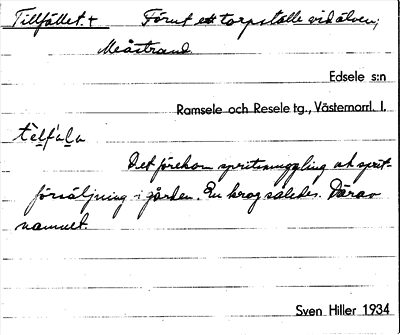 Tillfället. + Förut ett torpställe vid älven;
Meåstrand
Edsele s:n
Ramsele och Resele tg., Västernorrl. l.
Det förekom spritsmuggling och sprit-
försäljning i gården. En krog således. Därav
namnet.
Sven Hiller 1934